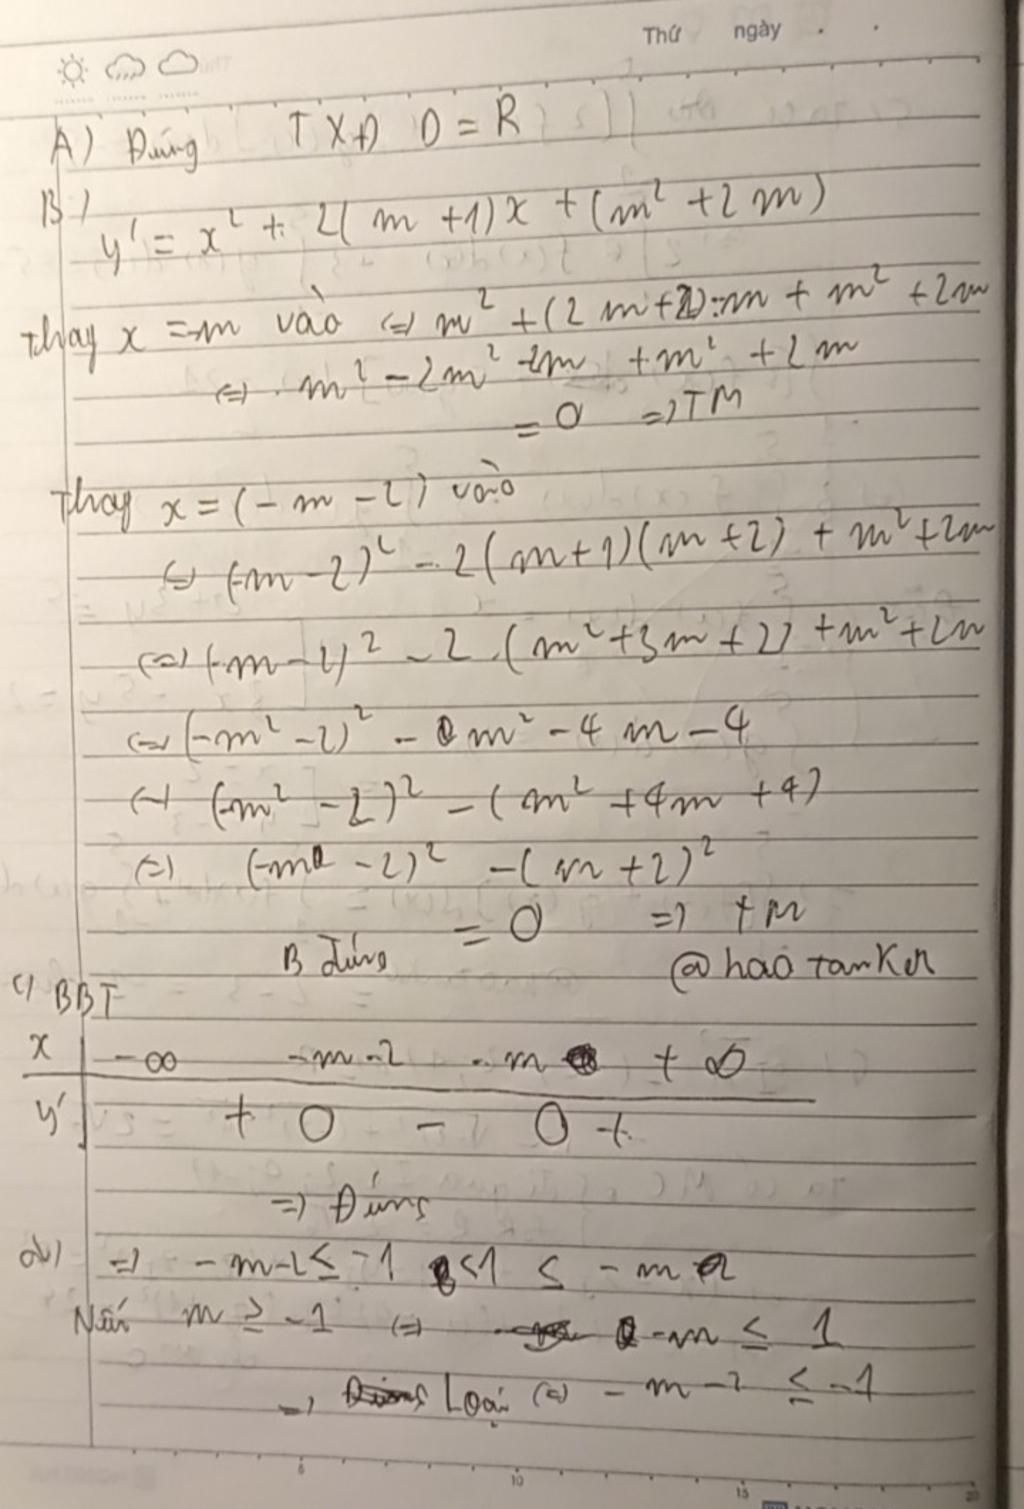 Thứ ngày . .
A) Đúng TXĐ D = R
B) y' = x² + 2(m +1)x + (m² + 2m)
Thay x = -m vào ⇔ m² + (2m+2).-m + m² + 2m
⇔ m² - 2m² - 2m + m² + 2m
= 0 ⇒ TM
Thay x = (-m - 2) vào
⇔ (-m - 2)² - 2(m+1)(m+2) + m² + 2m
⇔ (-m - 2)² - 2.(m² + 3m + 2) + m² + 2m
⇔ (-m² - 2)² - m² - 4m - 4
⇔ (-m² - 2)² - (m² + 4m + 4)
⇔ (-m - 2)² - (m + 2)²
= 0 ⇒ tm
B đúng @hao tanker
c) BBT
x -∞ -m-2 -m +∞
y' + 0 - 0 +
⇒ Đúng
d) ⇒ -m-2 ≤ -1 <1 ≤ -m
Nếu m ≥ -1 ⇔ -m ≤ 1
⇒ Loại ⇔ -m-2 ≤ -1
5 10 15 20